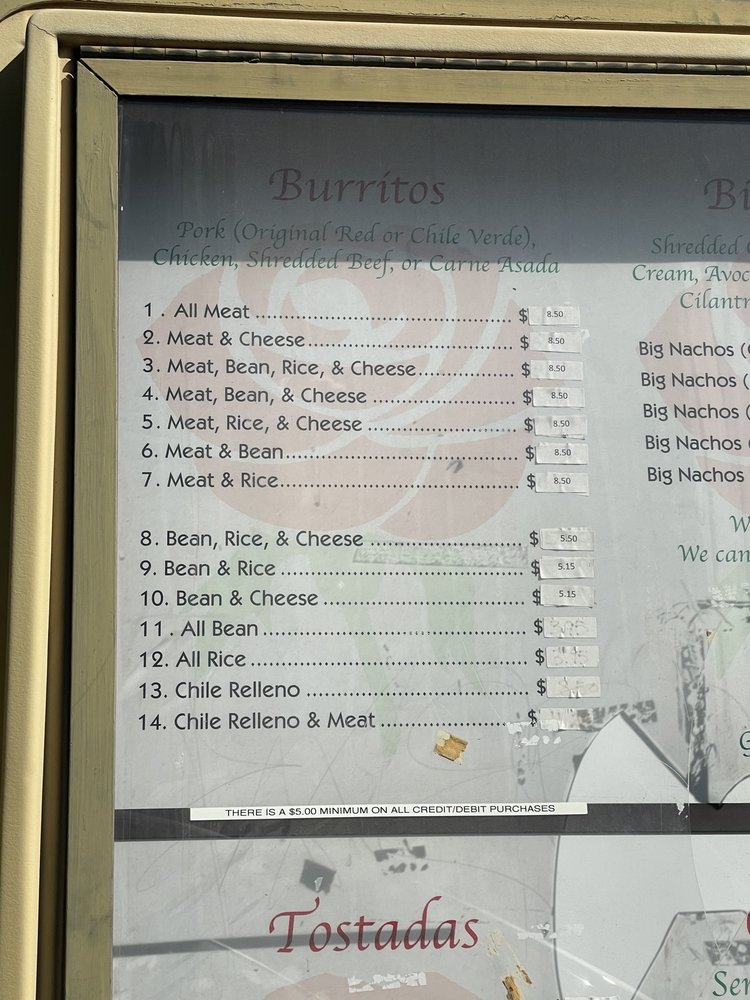 Burritos
Pork (Original Red or Chile Verde),
Chicken, Shredded Beef, or Carne Asada
1 . All Meat ........ $ 8.50
2. Meat & Cheese ........ $ 8.50
3. Meat, Bean, Rice, & Cheese ........ $ 8.50
4. Meat, Bean, & Cheese ........ $ 8.50
5. Meat, Rice, & Cheese ........ $ 8.50
6. Meat & Bean ........ $ 8.50
7. Meat & Rice ........ $ 8.50
8. Bean, Rice, & Cheese ........ $ 5.50
9. Bean & Rice ........ $ 5.15
10. Bean & Cheese ........ $ 5.15
11 . All Bean ........ $
12. All Rice ........ $
13. Chile Relleno ........ $
14. Chile Relleno & Meat ........ $
THERE IS A $5.00 MINIMUM ON ALL CREDIT/DEBIT PURCHASES
Tostadas
Shredded
Cream,
Big Nachos (
Big Nachos (
Big Nachos (
Big Nachos
Big Nachos
We can